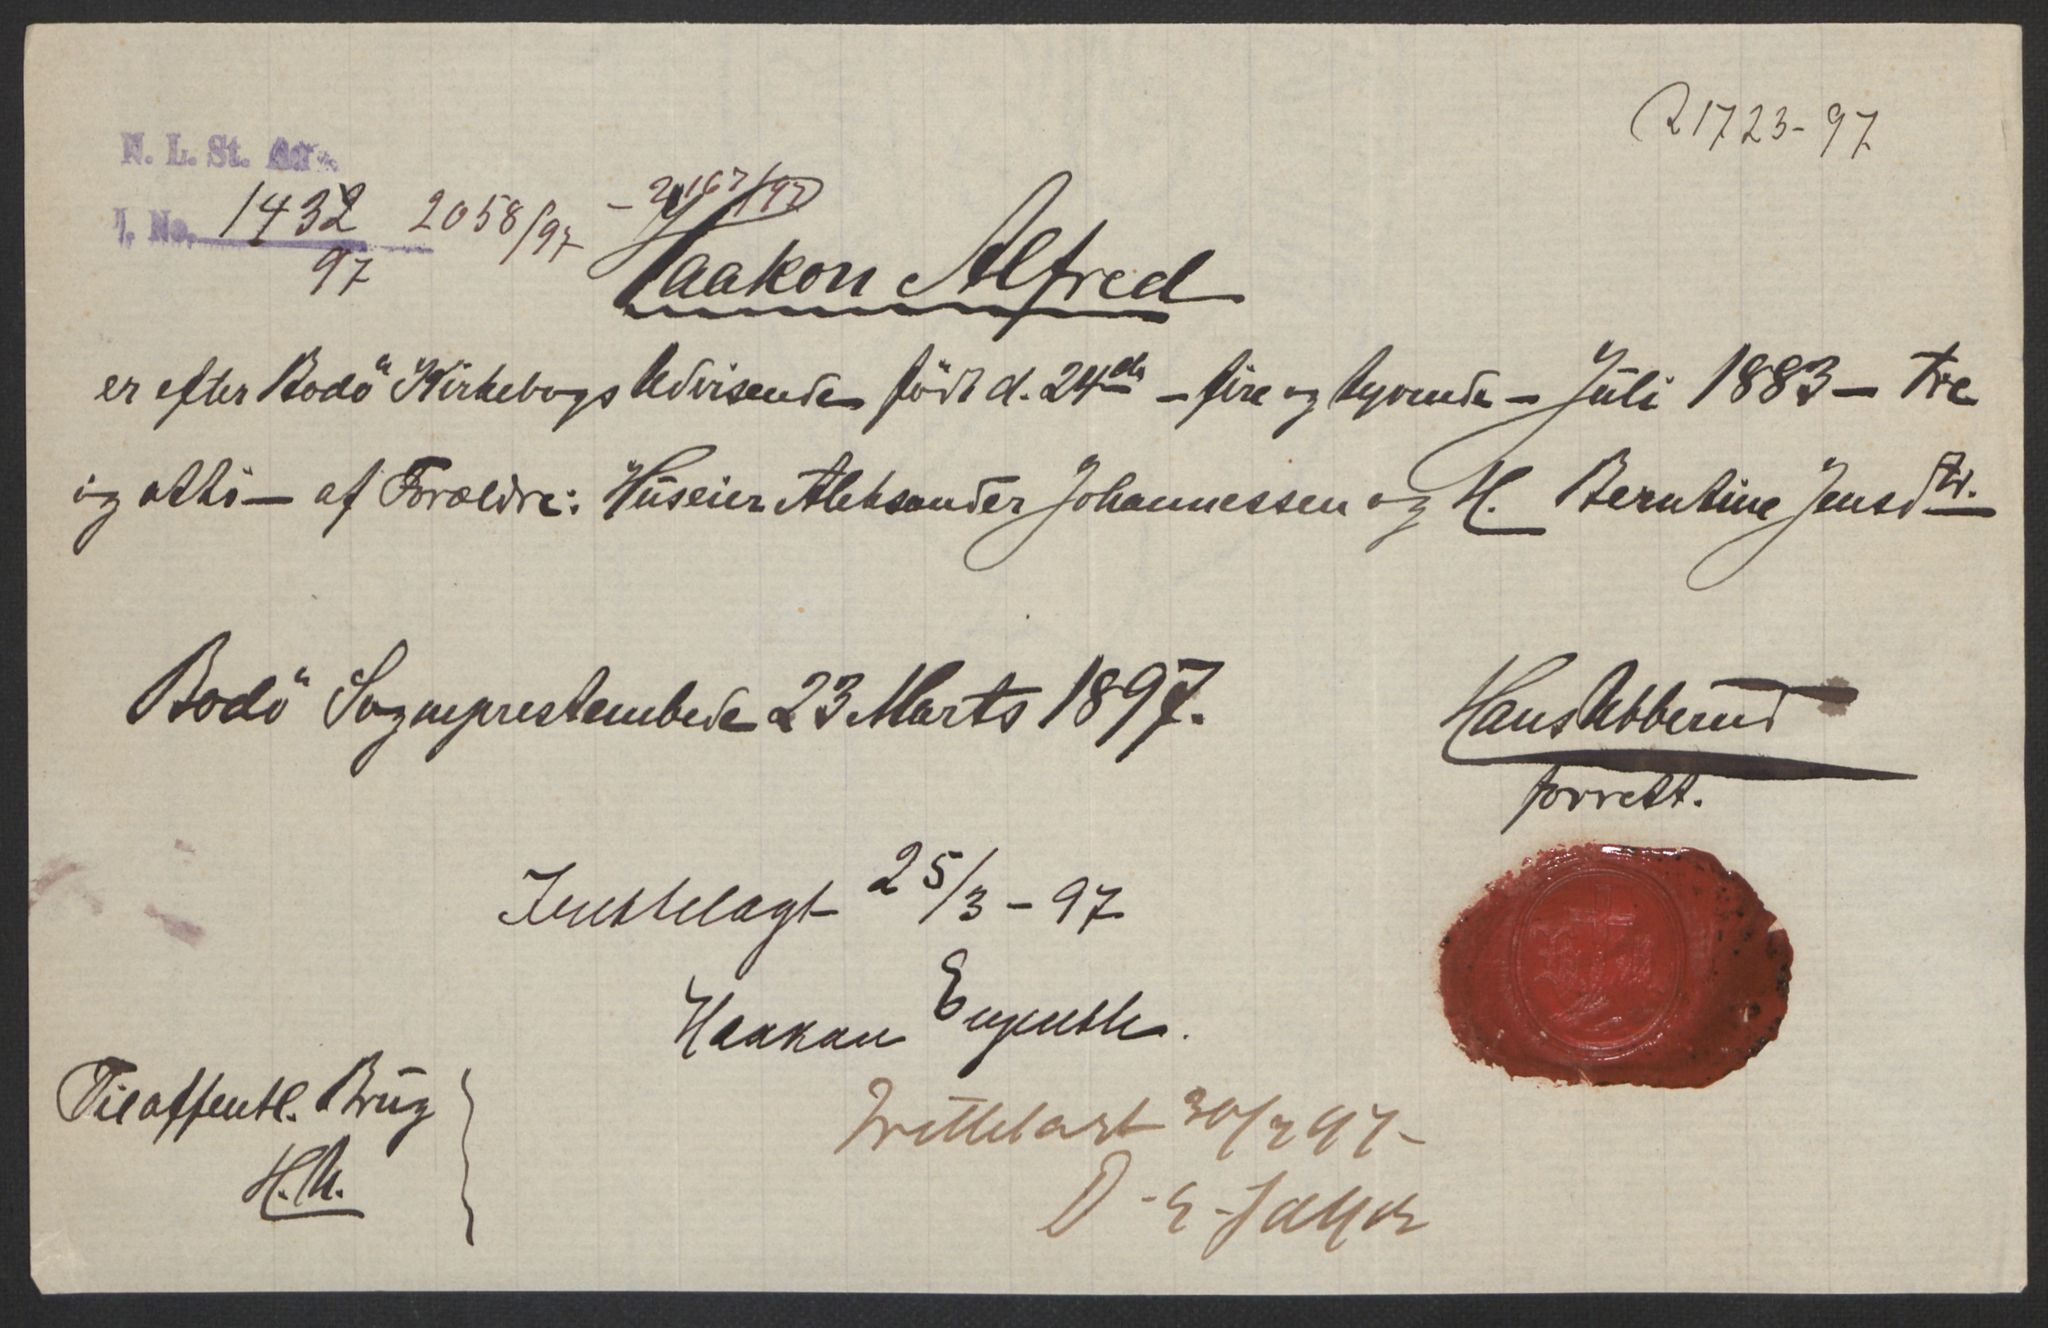 R 1723-97
N. L. St. A
J. No. 1432/97 2058/97 - 2167/97
Haakon Alfred
er efter Bodö Kirkebogs Udvisende född d. 24de - fire og tyvende - Juli 1883 - tre
og otti - af Forældre: Huseier Aleksander Johannessen og H. Berntine Jensdtr.
Bodö Sogneprestembede 23 Marts 1897.
Hans Ubberud
forrett.
Irettelagt 25/3-97
Haakon
Til offentl. Brug
H.U.
Irettelagt 30/3 97-
D. E.